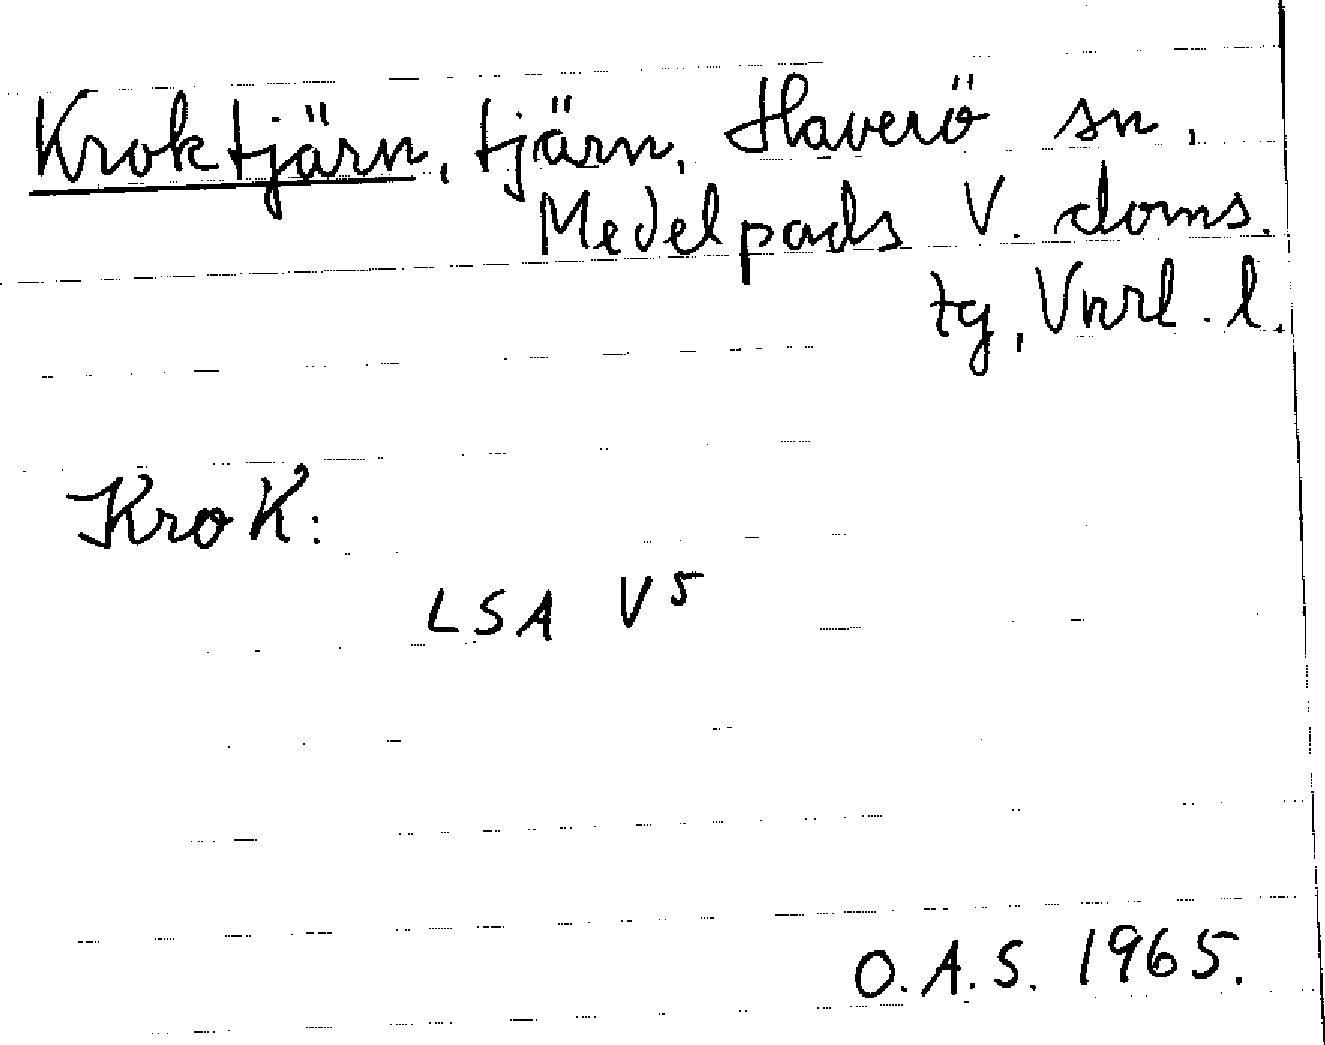 Kroktjärn, tjärn, Haverö sn,
Medelpads V. doms.
tg, Vnrl. l.
Krok:
LSA V5
O.A.S. 1965.